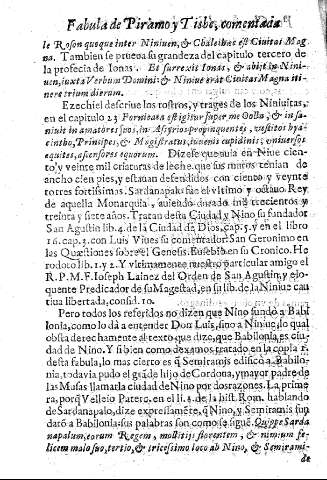 Fabula de Piramo y Tisbe, comentada
le Rosen quoque inter Niniuen, & Chalè hæc est Ciuitas Mag
na. Tambien se prueua su grandeza del capitulo tercero de
la profecia de Ionas. Et surrexit Ionas, & abijt in Nini-
uen, iuxta Verbum Domini: & Niniue erat Ciuitas Magna iti
nere trium dierum.
Ezechiel descriue los rostros, y trages de los Niniuitas,
en el capitulo 23 Fornicata est igitur super me Oolla, & in sa-
niuit in amatores suos, in Assyrios propinquentes, vestitos hya
cintho, Principes, & Magistratus, iuuenis cupidinis; vniuersos
equites, ascensores equorum. Dizese que auia en Niue cien-
to, y veinte mil criaturas de leche, que sus muros tenian de
ancho cien pies, y estauan defendidos con ciento y veynte
torres fortissimas. Sardanapalo fue el vltimo y octauo Rey
de aquella Monarquia, auiendo durado mil trecientos y
treinta y siete años. Tratan desta Ciudad y Nino su fundador
San Agustin lib. 4. de la Ciudad de Dios, cap. 5. y en el libro
16. cap. 3. con Luis Viues su comentador San Geronimo en
las Quæstiones sobre el Genesis. Eusebio en su Cronico. He
rodoto lib. 1. y 2. Y vltimamente nuestro particular amigo el
R. P. M. F. Ioseph Lainez del Orden de San Agustin, y elo-
quente Predicador de su Magestad, en su lib. de la Niniue cau
tiua libertada, consid. 10.
Pero todos los referidos no dizen que Nino fundò a Babi
lonia, como lo dà a entender Don Luis, sino a Niniue, lo qual
obsta derechamente al texto que dize, que Babilonia es ciu-
dad de Nino. Y si bien como dexamos tratado en la copla 1.
desta fabula, lo mas cierto es q̃ Semiramis edificò a Babilo-
nia, todavia pudo el grãde hijo de Cordoua, y mayor padre de
las Musas llamarla ciudad de Nino por dos razones. La prime
ra, porq̃ Velleio Patere, en el li. 4. de la hist. Rom. hablando
de Sardanapalo, dize expressamẽte, q̃ Nino, y Semiramis fun
darõ a Babilonia: sus palabras son como se sigue. Quippe Sarda
napalum, eorum Regem, mollitijs fluentem, & nimium fe-
licem malo suo, tertio, & tricesimo loco ab Nino, & Semirami-
de